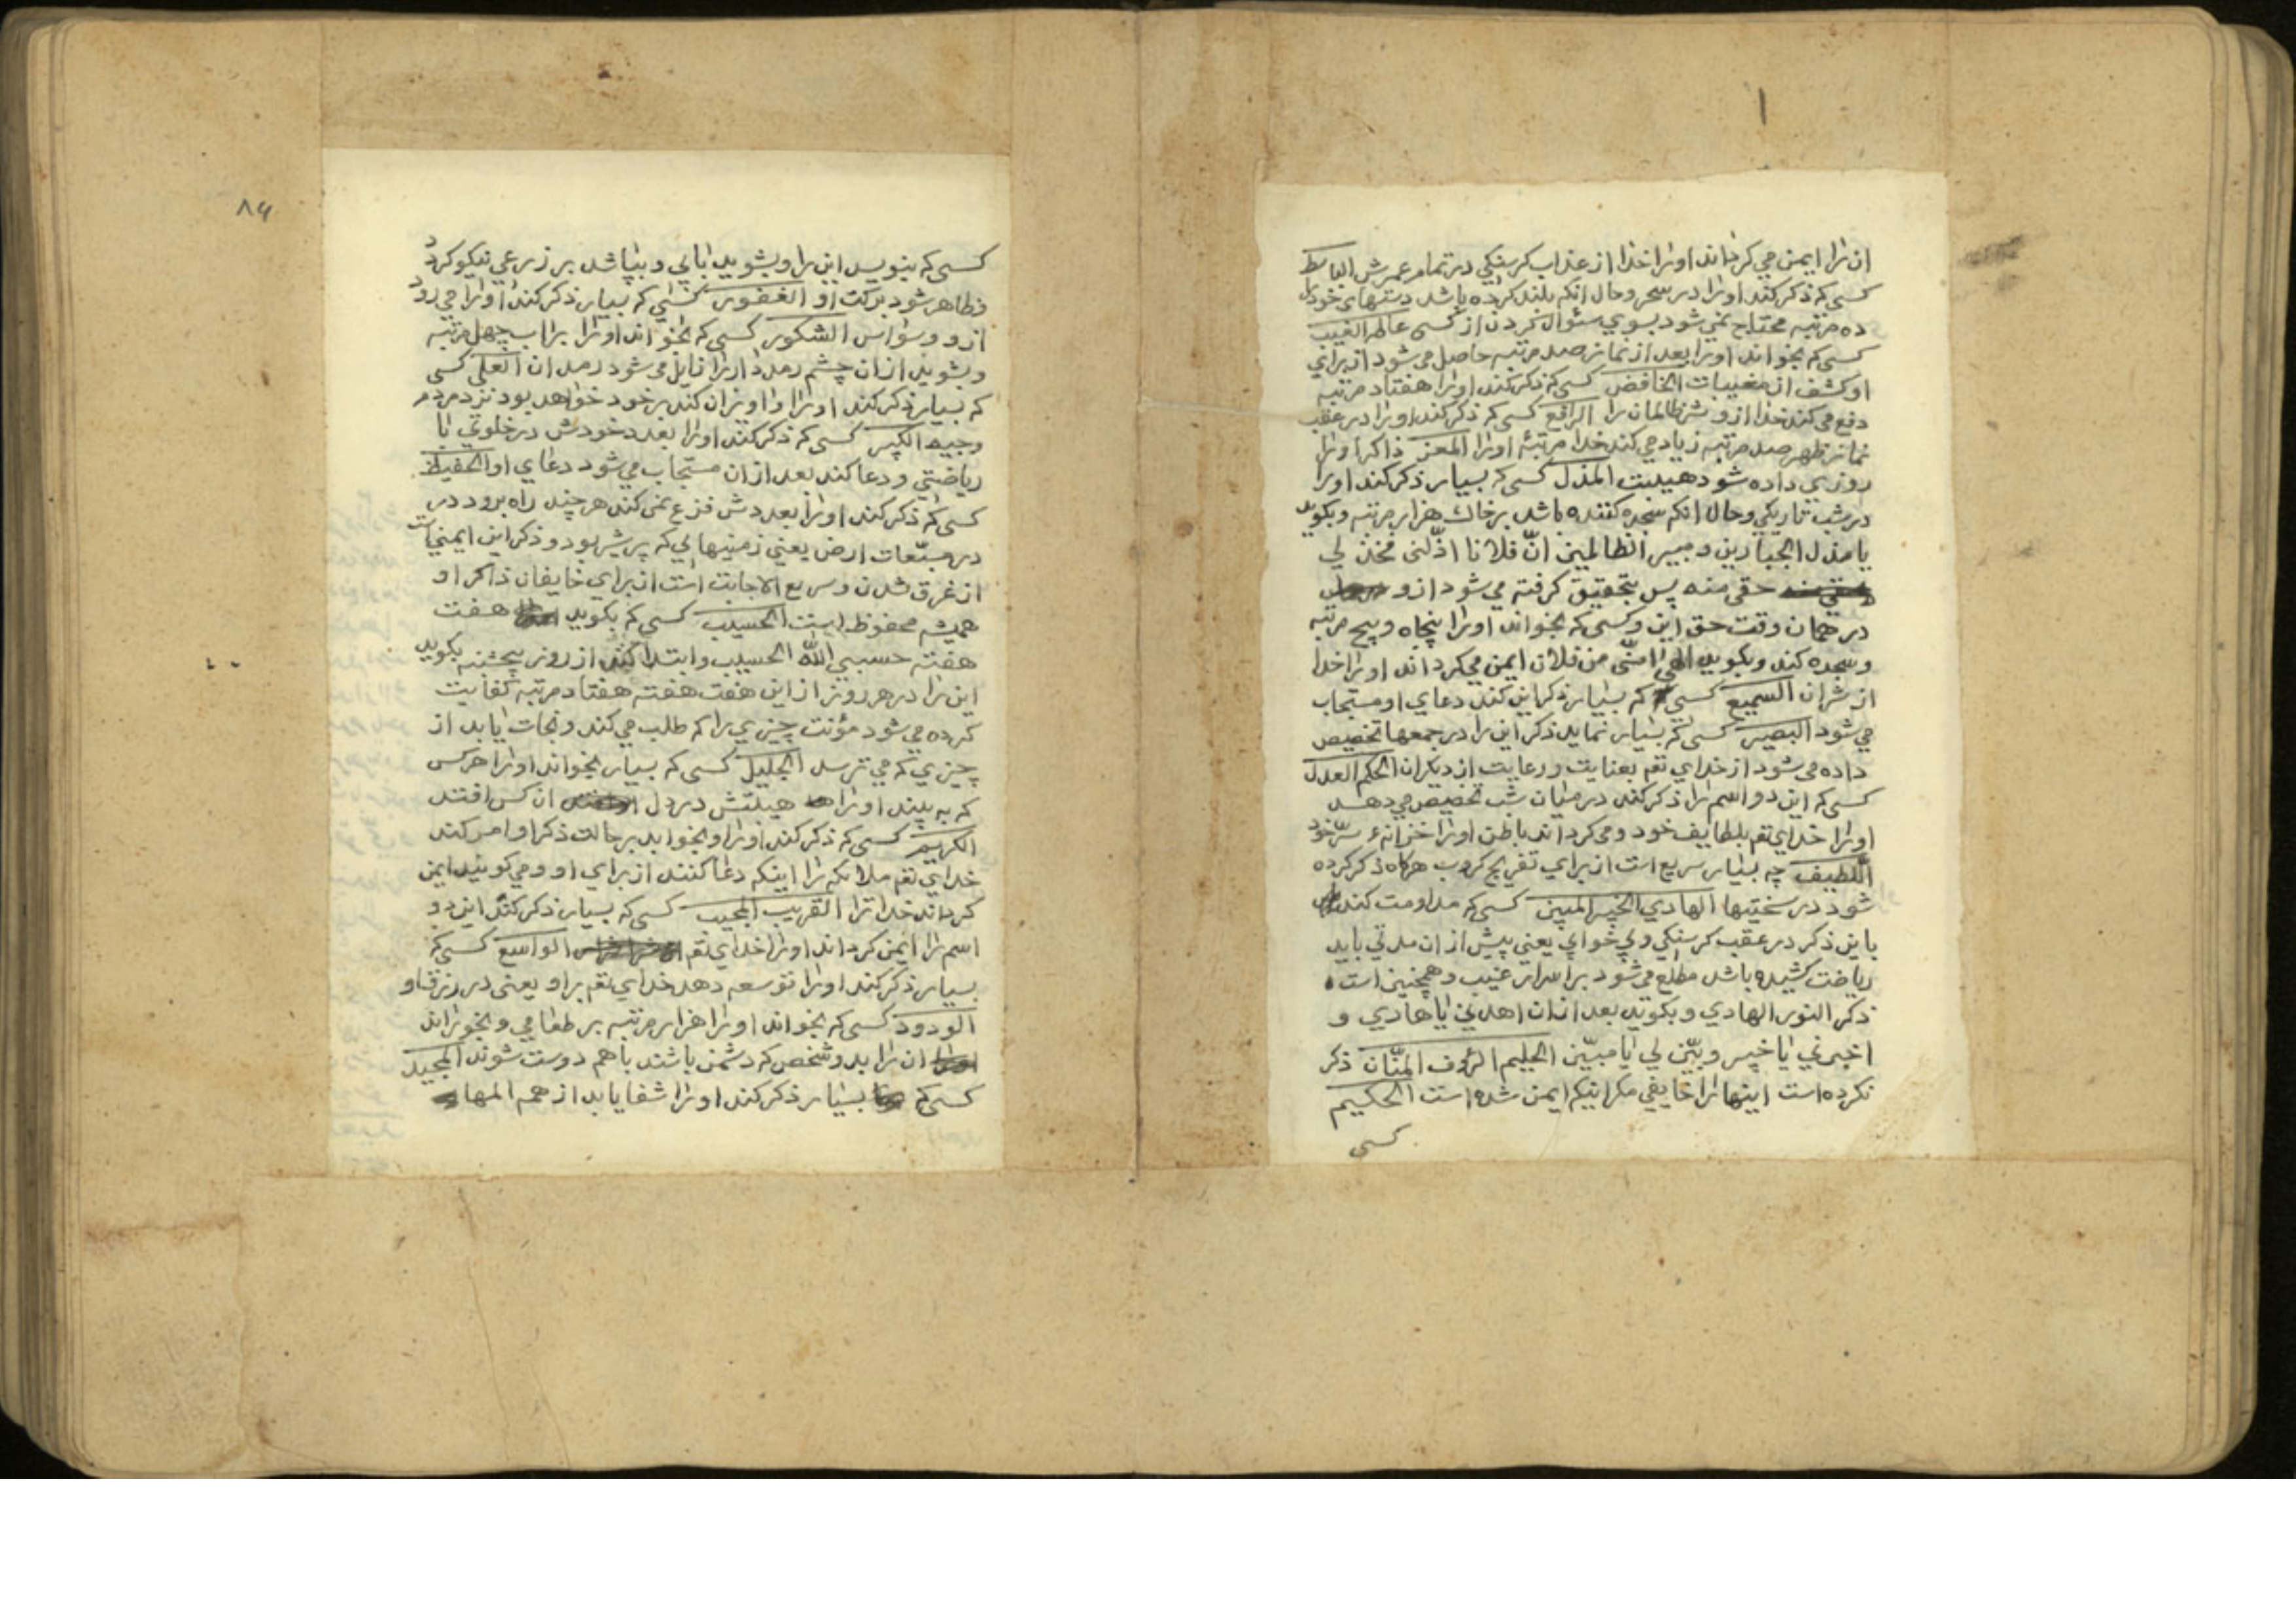 ان را ایمن می کرداند او را خدا از عذاب کرسنکی در تمام عمرش الباسط
کسی که ذکر کند او را در سحر و حال انکه بلند کرده باشد دستهای خود را
ده مرتبه محتاج نمی شود بسوی سئوال کردن از کسی عالم الغیب
کسی که بخواند او را بعد از نماز صد مرتبه حاصل می شود از برای
او کشف از مغیبات الخافض کسی که ذکر کند او را هفتاد مرتبه
دفع می کند خدا از و شر ظالمان را الرافع کسی که ذکر کند او را در عقب
نماز ظهر صد مرتبه زیاد می کند خدا مرتبهٔ او را المعز ذاکر او را
روزی داده شود هیبت المذل کسی که بسیار ذکر کند او را
در شب تاریکی و حال انکه سجده کننده باشد بر خاک هزار مرتبه و بکوید
یا مذل الجبارین و مبیر الظالمین انّ فلانا اذلّنی فخذ لی
حقی منه پس بتحقیق کرفته می شود از و
در همان وقت حق این و کسی که بخواند او را پنجاه و پنج مرتبه
و سجده کند و بکوید الهی امنّی من فلان ایمن می کرداند او را خدا
از شر ان السمیع کسی که بسیار ذکر این کند دعای او مستجاب
می شود البصیر کسی که بسیار نماید ذکر این را در جمعها تخصیص
داده می شود از خدای تعم بعنایت و رعایت از دیکران الحکم العدل
کسی که این دو اسم را ذکر کند در میان شب تخصیص می دهد
او را خدای تعم بلطایف خود و می کرداند باطن او را خزانهٔ سرّ خود
اللطیف چه بسیار سریع است از برای تفریج کروب هرکاه ذکر کرده
شود در سختیها الهادی الخبیر المبین کسی که مداومت کند
باین ذکر در عقب کرسنکی و بی خوابی یعنی پیش از ان مدتی باید
ریاضت کشیده باشد مطلع می شود بر اسرار غیب و همچنین است
ذکر النور الهادی و بکوید بعد از ان اهدنی یا هادی و
اخبرنی یا خبیر و بیّن لی یا مبیّن الحلیم الرؤف المنّان ذکر
نکرده است اینها را خایفی مکر اینکه ایمن شده است الحکیم
کسی
۸۶
کسی که بنویسد این را و بشوید بابی و بپاشد بر زرعی نیکو کردد
و ظاهر شود برکت او الغفور کسی که بسیار ذکر کند او را می رود
از و وسواس الشکور کسی که بخواند او را بر اب چهل مرتبه
و بشوید از ان چشم رمد دار را زایل می شود رمد ان العلی کسی
که بسیار ذکر کند او را و اویزان کند بر خود خواهد بود نزد مردم
وجیه الکبیر کسی که ذکر کند او را بعدد خودش در خلوتی با
ریاضتی و دعا کند بعد از ان مستجاب می شود دعای او الحفیظ
کسی که ذکر کند او را بعددش فزع نمی کند هر چند راه برود در
در مسبّعات ارض یعنی زمینهایی که پر شیر بود و ذکر این ایمنی است
از غرق شدن و سریع الاجابت است از برای خایفان ذاکر او
همیشه محفوظ است الحسیب کسی که بکوید هفت
هفته حسبی الله الحسیب و ابتدا کند از روز پنجشنبه بکوید
این را در هر روز از این هفت هفته هفتاد مرتبه کفایت
کرده می شود مؤنت چیزی را که طلب می کند و نجات یابد از
چیزی که می ترسد الجلیل کسی که بسیار بخواند او را هر کس
که به بیند او را هیبتش در دل ان کس افتد
الکریم کسی که ذکر کند او را و بخوابد بر حالت ذکر او امر کند
خدای تعم ملائکه را اینکه دعا کنند از برای او و می کویند ایمن
کرداند خدا ترا القریب المجیب کسی که بسیار ذکر کند این دو
اسم را ایمن کرداند او را خدای تعم الواسع کسی که
بسیار ذکر کند او را توسعه دهد خدای تعم بر او یعنی در رزق او
الودود کسی که بخواند او را هزار مرتبه بر طعامی و بخوراند
ان را بدو شخص که دشمن باشند با هم دوست شوند المجید
کسی که بسیار ذکر کند او را شفا یابد از همه المها